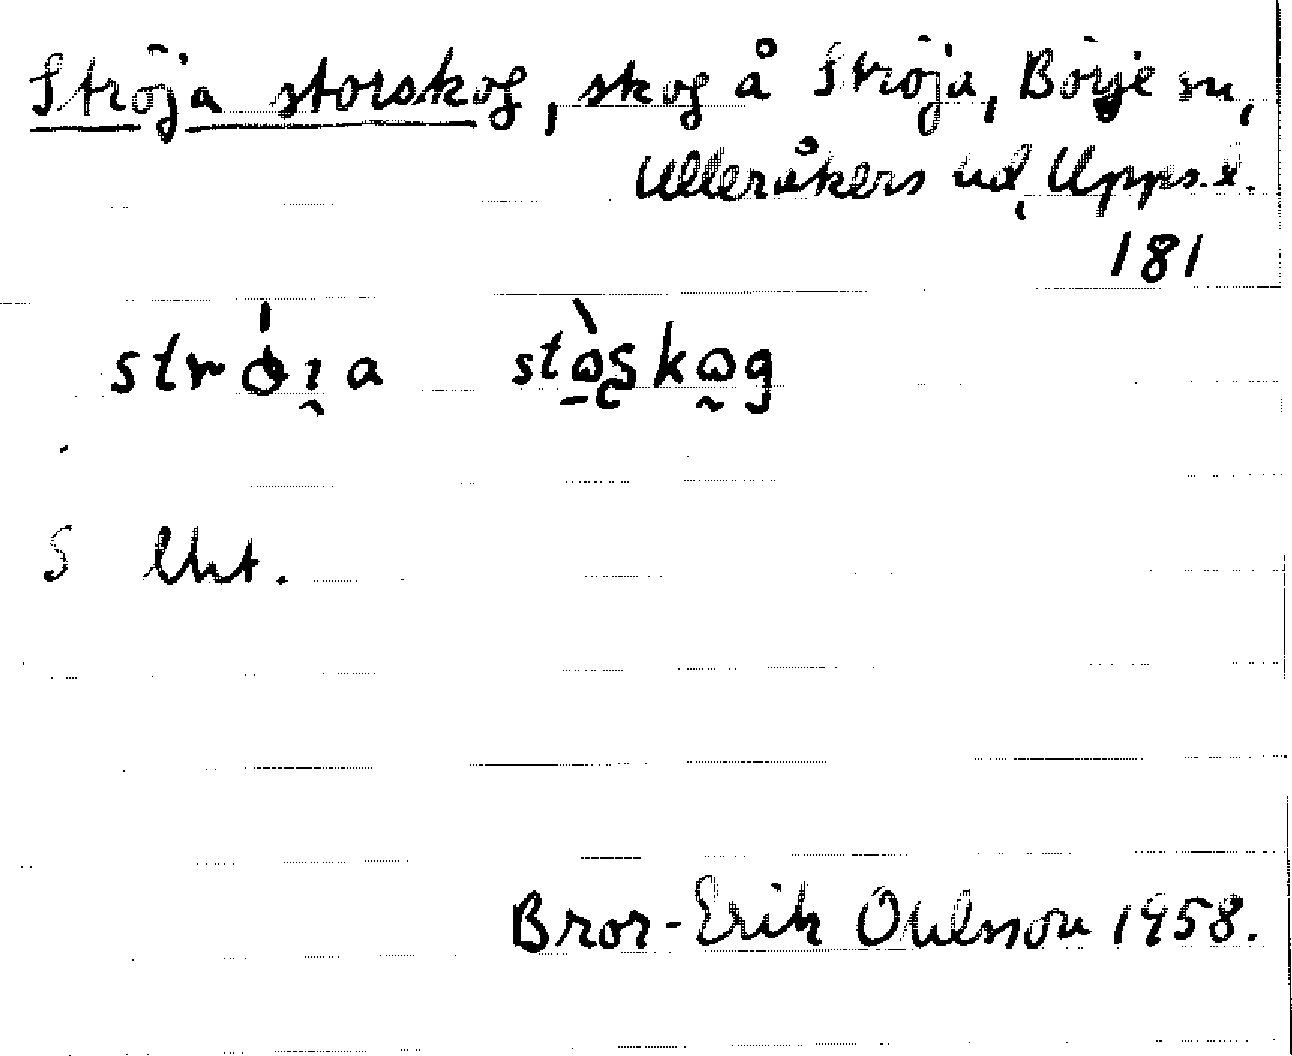 Ströja storskog, skog å Ströja, Börje sn,
Ulleråkers hd, Upps. l.
181
S Utt.
Bror-Erik Ohlsson 1958.